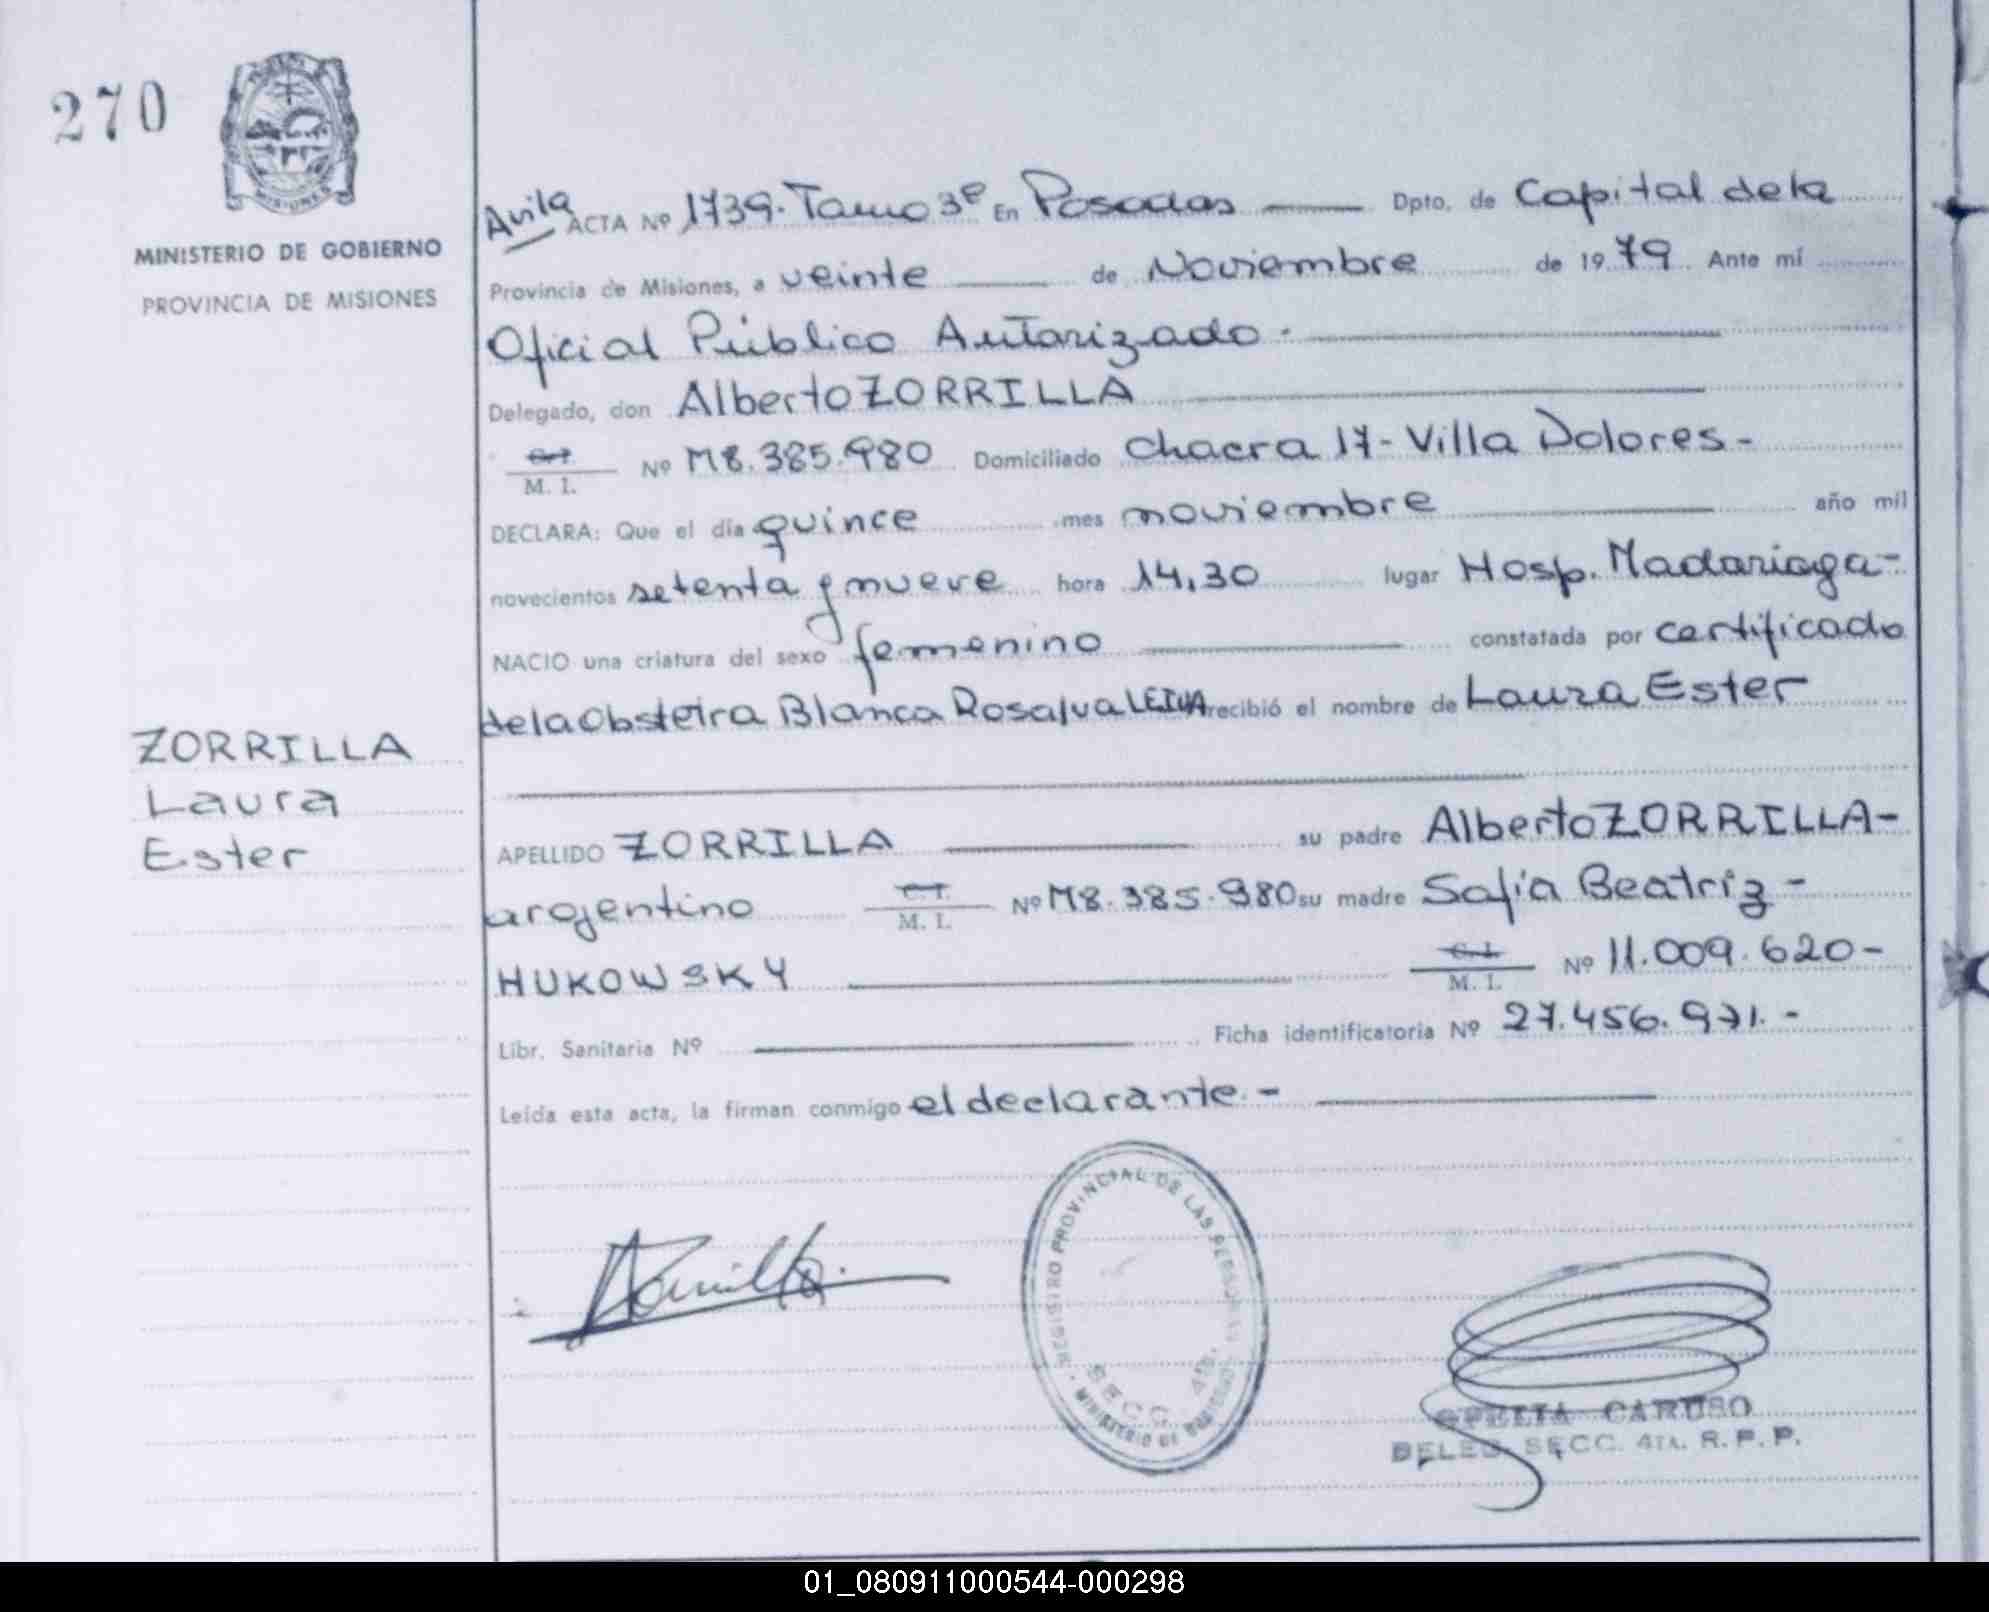 270
MISIONES
MINISTERIO DE GOBIERNO
PROVINCIA DE MISIONES
ZORRILLA
Laura
Ester
Avila ACTA Nº 1739. Tomo 3º En Posadas Dpto. de Capital de la
Provincia de Misiones, a veinte de Noviembre de 1979 Ante mí
Oficial Público Autorizado.
Delegado, don Alberto ZORRILLA
C.I. M. I. Nº M8.385.980 Domiciliado Chacra 17- Villa Dolores-
DECLARA: Que el día quince mes noviembre año mil
novecientos setenta y nueve hora 14,30 lugar Hosp. Madariaga-
NACIO una criatura del sexo femenino constatada por certificado
de la Obstetra Blanca Rosalva LEIVA recibió el nombre de Laura Ester
APELLIDO ZORRILLA su padre Alberto ZORRILLA-
argentino C.I. M. I. Nº M8.385.980 su madre Sofía Beatríz-
HUKOWSKY C.I. M. I. Nº 11.009.620-
Libr. Sanitaria Nº Ficha identificatoria Nº 27.456.971.-
Leída esta acta, la firman conmigo el declarante.-
REGISTRO PROVINCIAL DE LAS PERSONAS
SECC. 4ta.
MINISTERIO DE GOBIERNO
CARUSO
DELEG. SECC. 4TA. R. P. P.
01_080911000544-000298